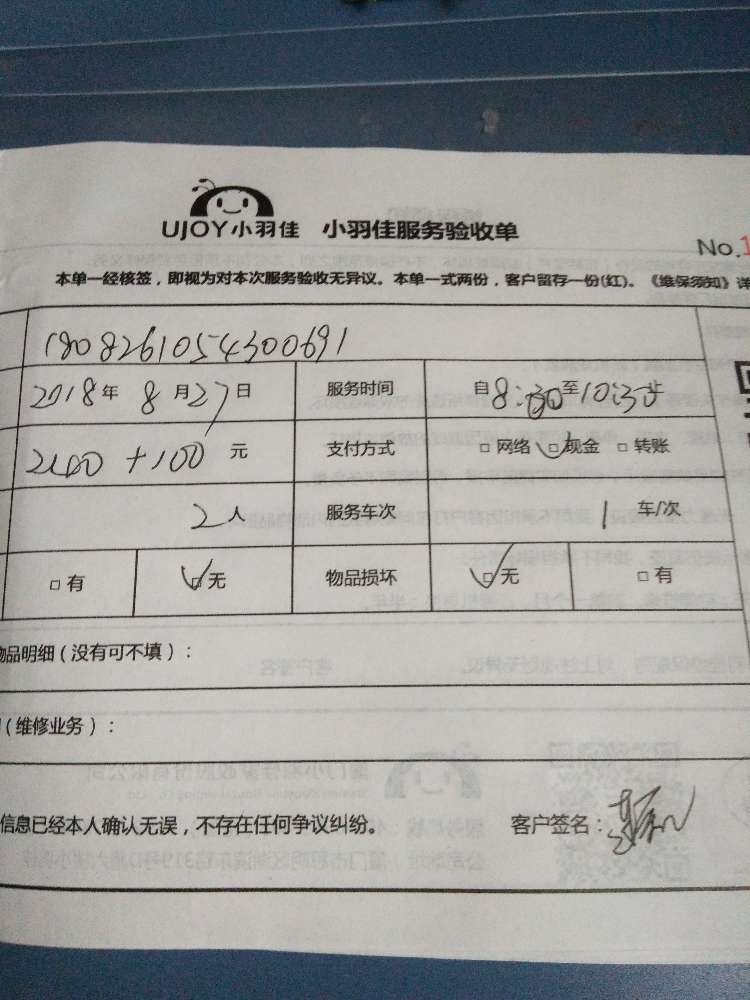 UJOY小羽佳 小羽佳服务验收单
No.1
本单一经核签，即视为对本次服务验收无异议。本单一式两份，客户留存一份(红)。《维保须知》详
1808261054300691
2018年 8月27日 服务时间 自8:30至10:30止
2100+100元 支付方式 □网络 □现金 □转账
2人 服务车次 1车/次
□有 □无 物品损坏 □无 □有
物品明细（没有可不填）：
（维修业务）：
信息已经本人确认无误，不存在任何争议纠纷。 客户签名：